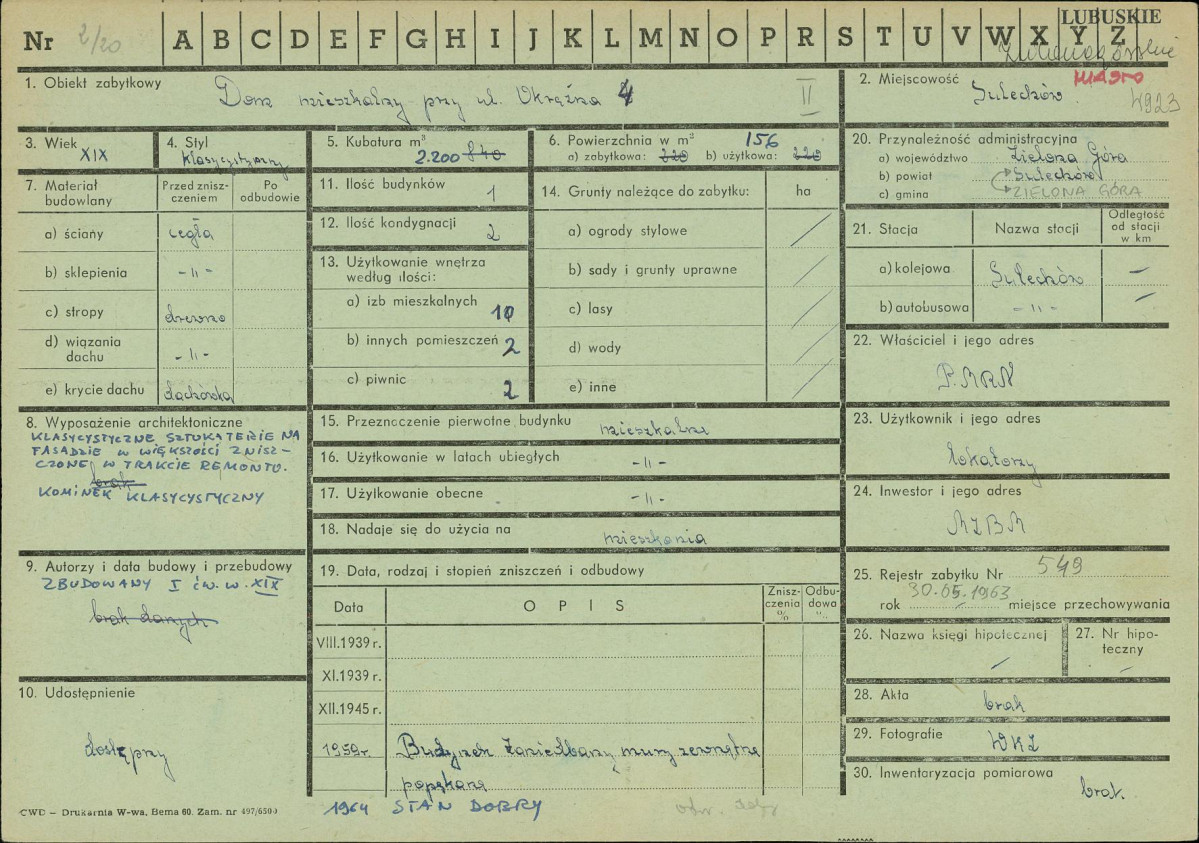 LUBUSKIE
Nr 2/20 A B C D E F G H I J K L M N O P R S T U V W X Y Z
1. Obiekt zabytkowy Dom mieszkalny przy ul. Okrężna 4 II
2. Miejscowość Sulechów MIASTO
4923
3. Wiek XIX
4. Styl klasycystyczny
5. Kubatura m³ 2.200 840
6. Powierzchnia w m² 156
a) zabytkowa: 220 b) użytkowa: 220
20. Przynależność administracyjna
a) województwo Zielona Góra
b) powiat Sulechów
c) gmina ZIELONA GÓRA
7. Materiał budowlany
Przed zniszczeniem
Po odbudowie
a) ściany cegła
b) sklepienia -"-
c) stropy drewno
d) wiązania dachu -"-
e) krycie dachu dachówka
11. Ilość budynków 1
12. Ilość kondygnacji 2
13. Użytkowanie wnętrza
według ilości:
a) izb mieszkalnych 10
b) innych pomieszczeń 2
c) piwnic 2
14. Grunty należące do zabytku: ha
a) ogrody stylowe /
b) sady i grunty uprawne /
c) lasy /
d) wody /
e) inne /
21. Stacja Nazwa stacji Odległość od stacji w km
a) kolejowa Sulechów –
b) autobusowa -"- –
22. Właściciel i jego adres
P.MRN
23. Użytkownik i jego adres
lokatorzy
24. Inwestor i jego adres
MZBM
8. Wyposażenie architektoniczne
KLASYCYSTYCZNE SZTUKATERIE NA
FASADZIE W WIĘKSZOŚCI ZNISZ-
CZONE W TRAKCIE REMONTU.
brak
KOMINEK KLASYCYSTYCZNY
15. Przeznaczenie pierwotne budynku mieszkalne
16. Użytkowanie w latach ubiegłych -"-
17. Użytkowanie obecne -"-
18. Nadaje się do użycia na mieszkania
9. Autorzy i data budowy i przebudowy
ZBUDOWANY I ćw. w. XIX
brak danych
10. Udostępnienie
dostępny
19. Data, rodzaj i stopień zniszczeń i odbudowy
Data OPIS Zniszczenia % Odbudowa %
VIII.1939 r.
XI.1939 r.
XII.1945 r.
1959r. Budynek zaniedbany, mury zewnętrzne
popękane
1964 STAN DOBRY
25. Rejestr zabytku Nr 549
30.05.1963
rok miejsce przechowywania
26. Nazwa księgi hipotecznej /
27. Nr hipoteczny /
28. Akta brak
29. Fotografie WKZ
30. Inwentaryzacja pomiarowa
brak
CWD – Drukarnia W-wa, Bema 60. Zam. nr 497/6500